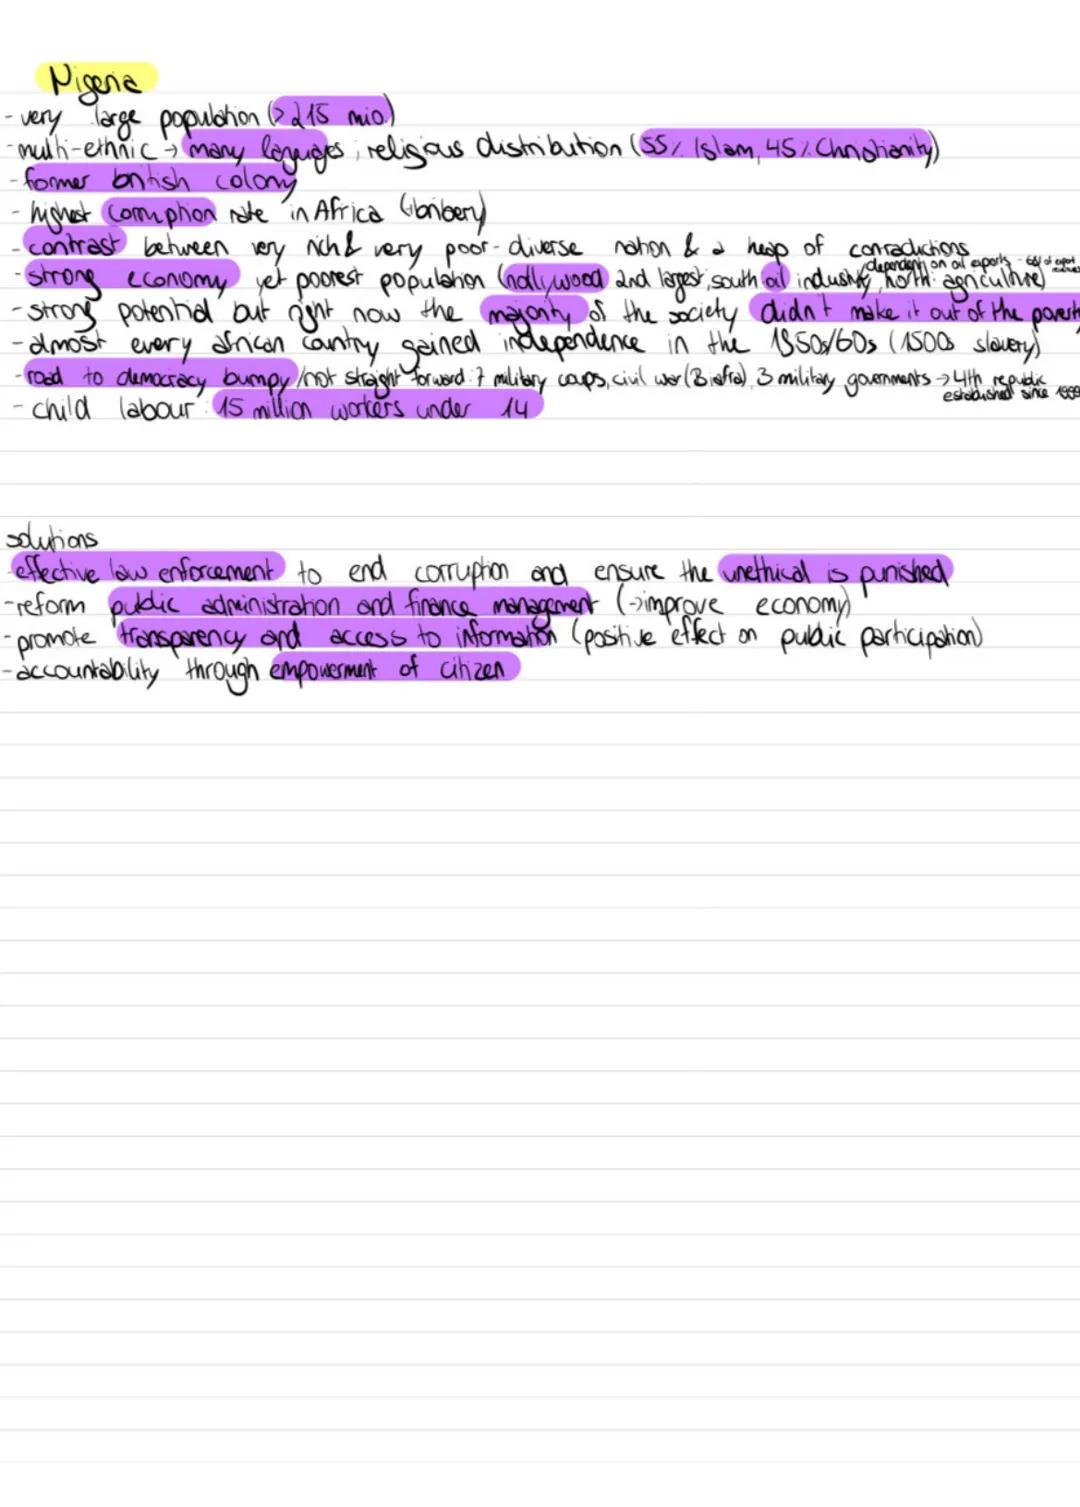 Nigeria
- very large population (>215 mio.)
- multi-ethnic → many languages ; religious distribution (55% Islam, 45% Christianity)
- former british colony
- highest corruption rate in Africa (bribery)
- contrast between very rich & very poor - diverse nation & a heap of contradictions
dependency on oil exports - of export
- strong economy yet poorest population (nollywood 2nd largest, south oil industry, north: agriculture)
- strong potential but right now the majority of the society didn't make it out of the poverty
- almost every african country gained independence in the 1950s/60s (1500s slavery)
- road to democracy bumpy/not straight forward: 7 military coups, civil war (Biafra), 3 military governments → 4th republic
established since 1999
- child labour: 15 million workers under 14
solutions
- effective law enforcement to end corruption and ensure the unethical is punished
- reform public administration and finance management (→ improve economy)
- promote transparency and access to information (positive effect on public participation)
- accountability through empowerment of citizen